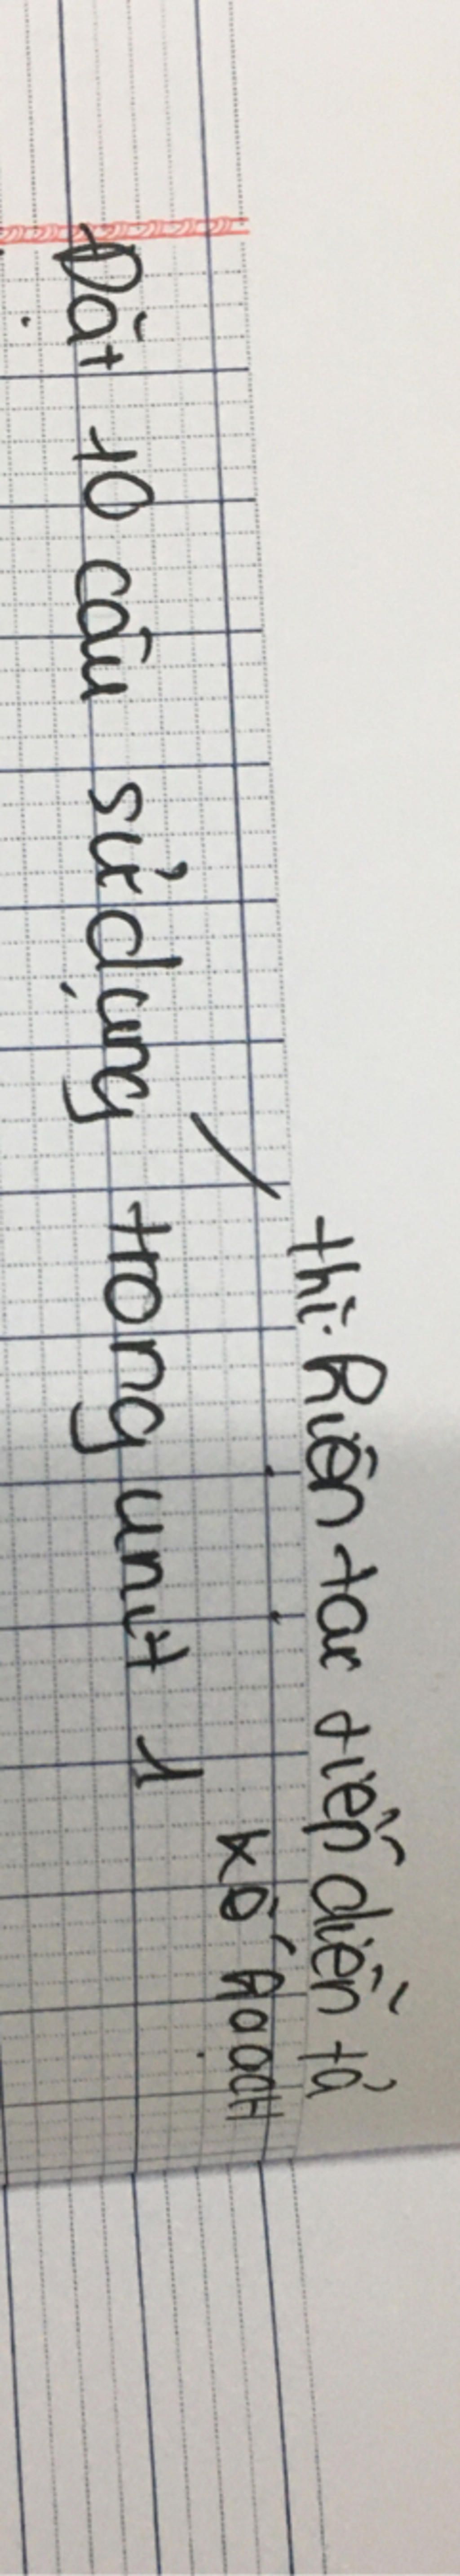 thì hiện tại tiếp diễn tả
kế hoạch
Đặt 10 câu sử dụng / trong unit 1